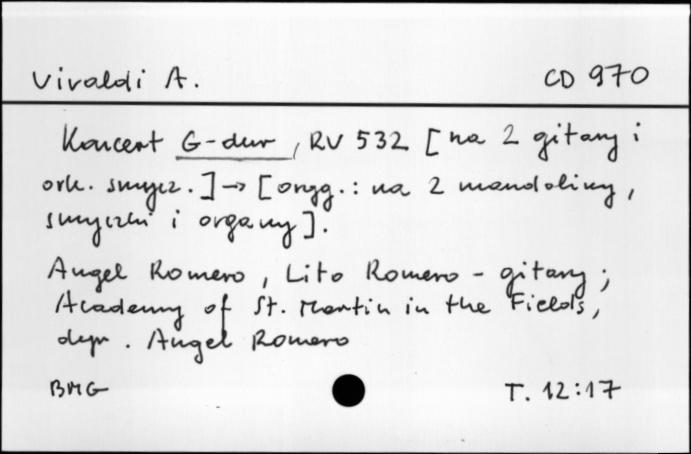 Vivaldi A. CD 970
Koncert G-dur, RV 532 [na 2 gitary i
ork. smycz.] → [oryg.: na 2 mandoliny,
smyczki i organy].
Angel Romero, Lito Romero - gitary;
Academy of St. Martin in the Fields,
dyr. Angel Romero
BMG T. 12:17